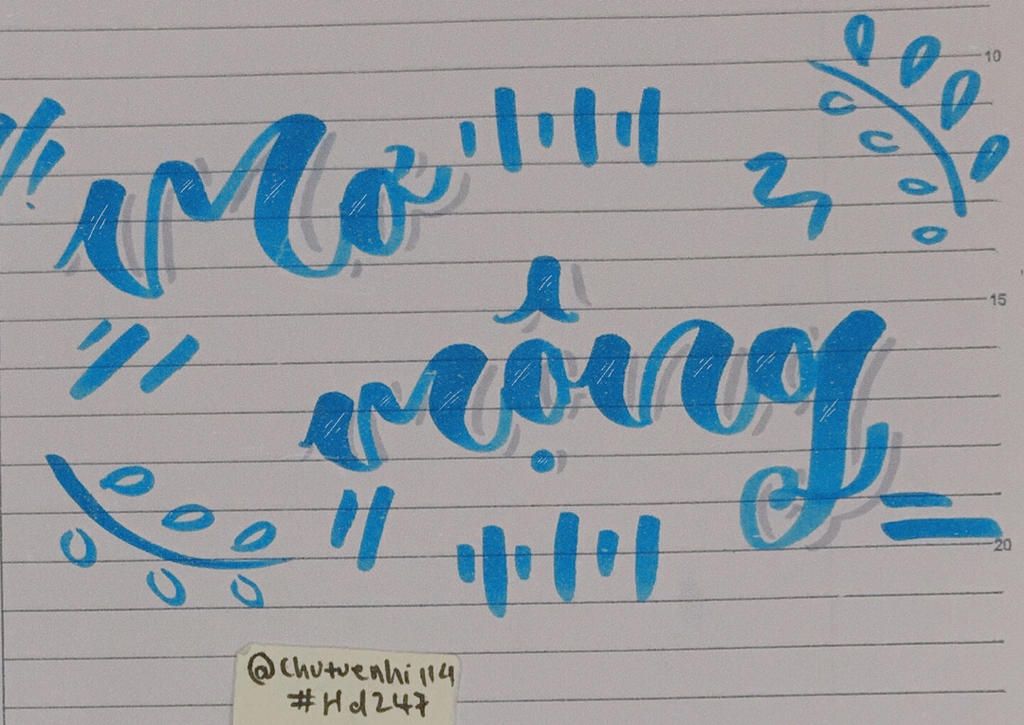 Mơ
mộng
10
15
20
@chutuenhi114
#Hd247